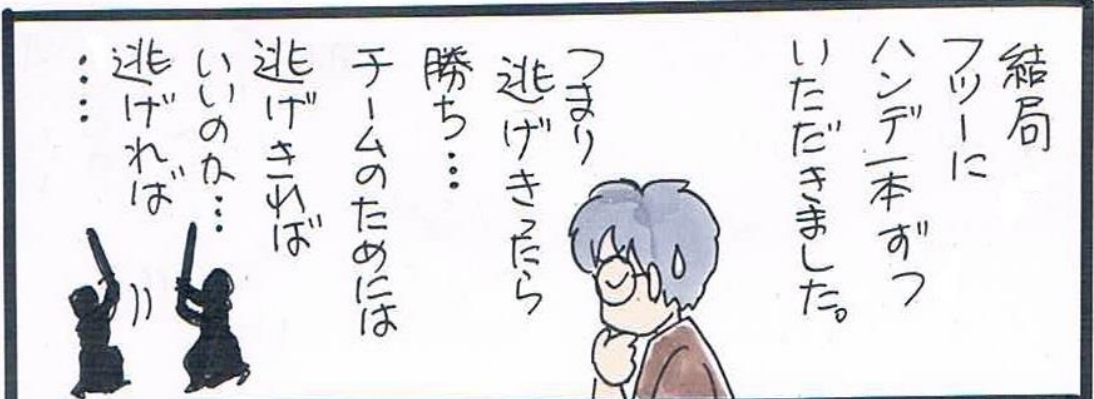 結局
フツーに
ハンデ一本ずつ
いただきました。
つまり
逃げきったら
勝ち…
チームのためには
逃げきれば
いいのか…
逃げれば
……